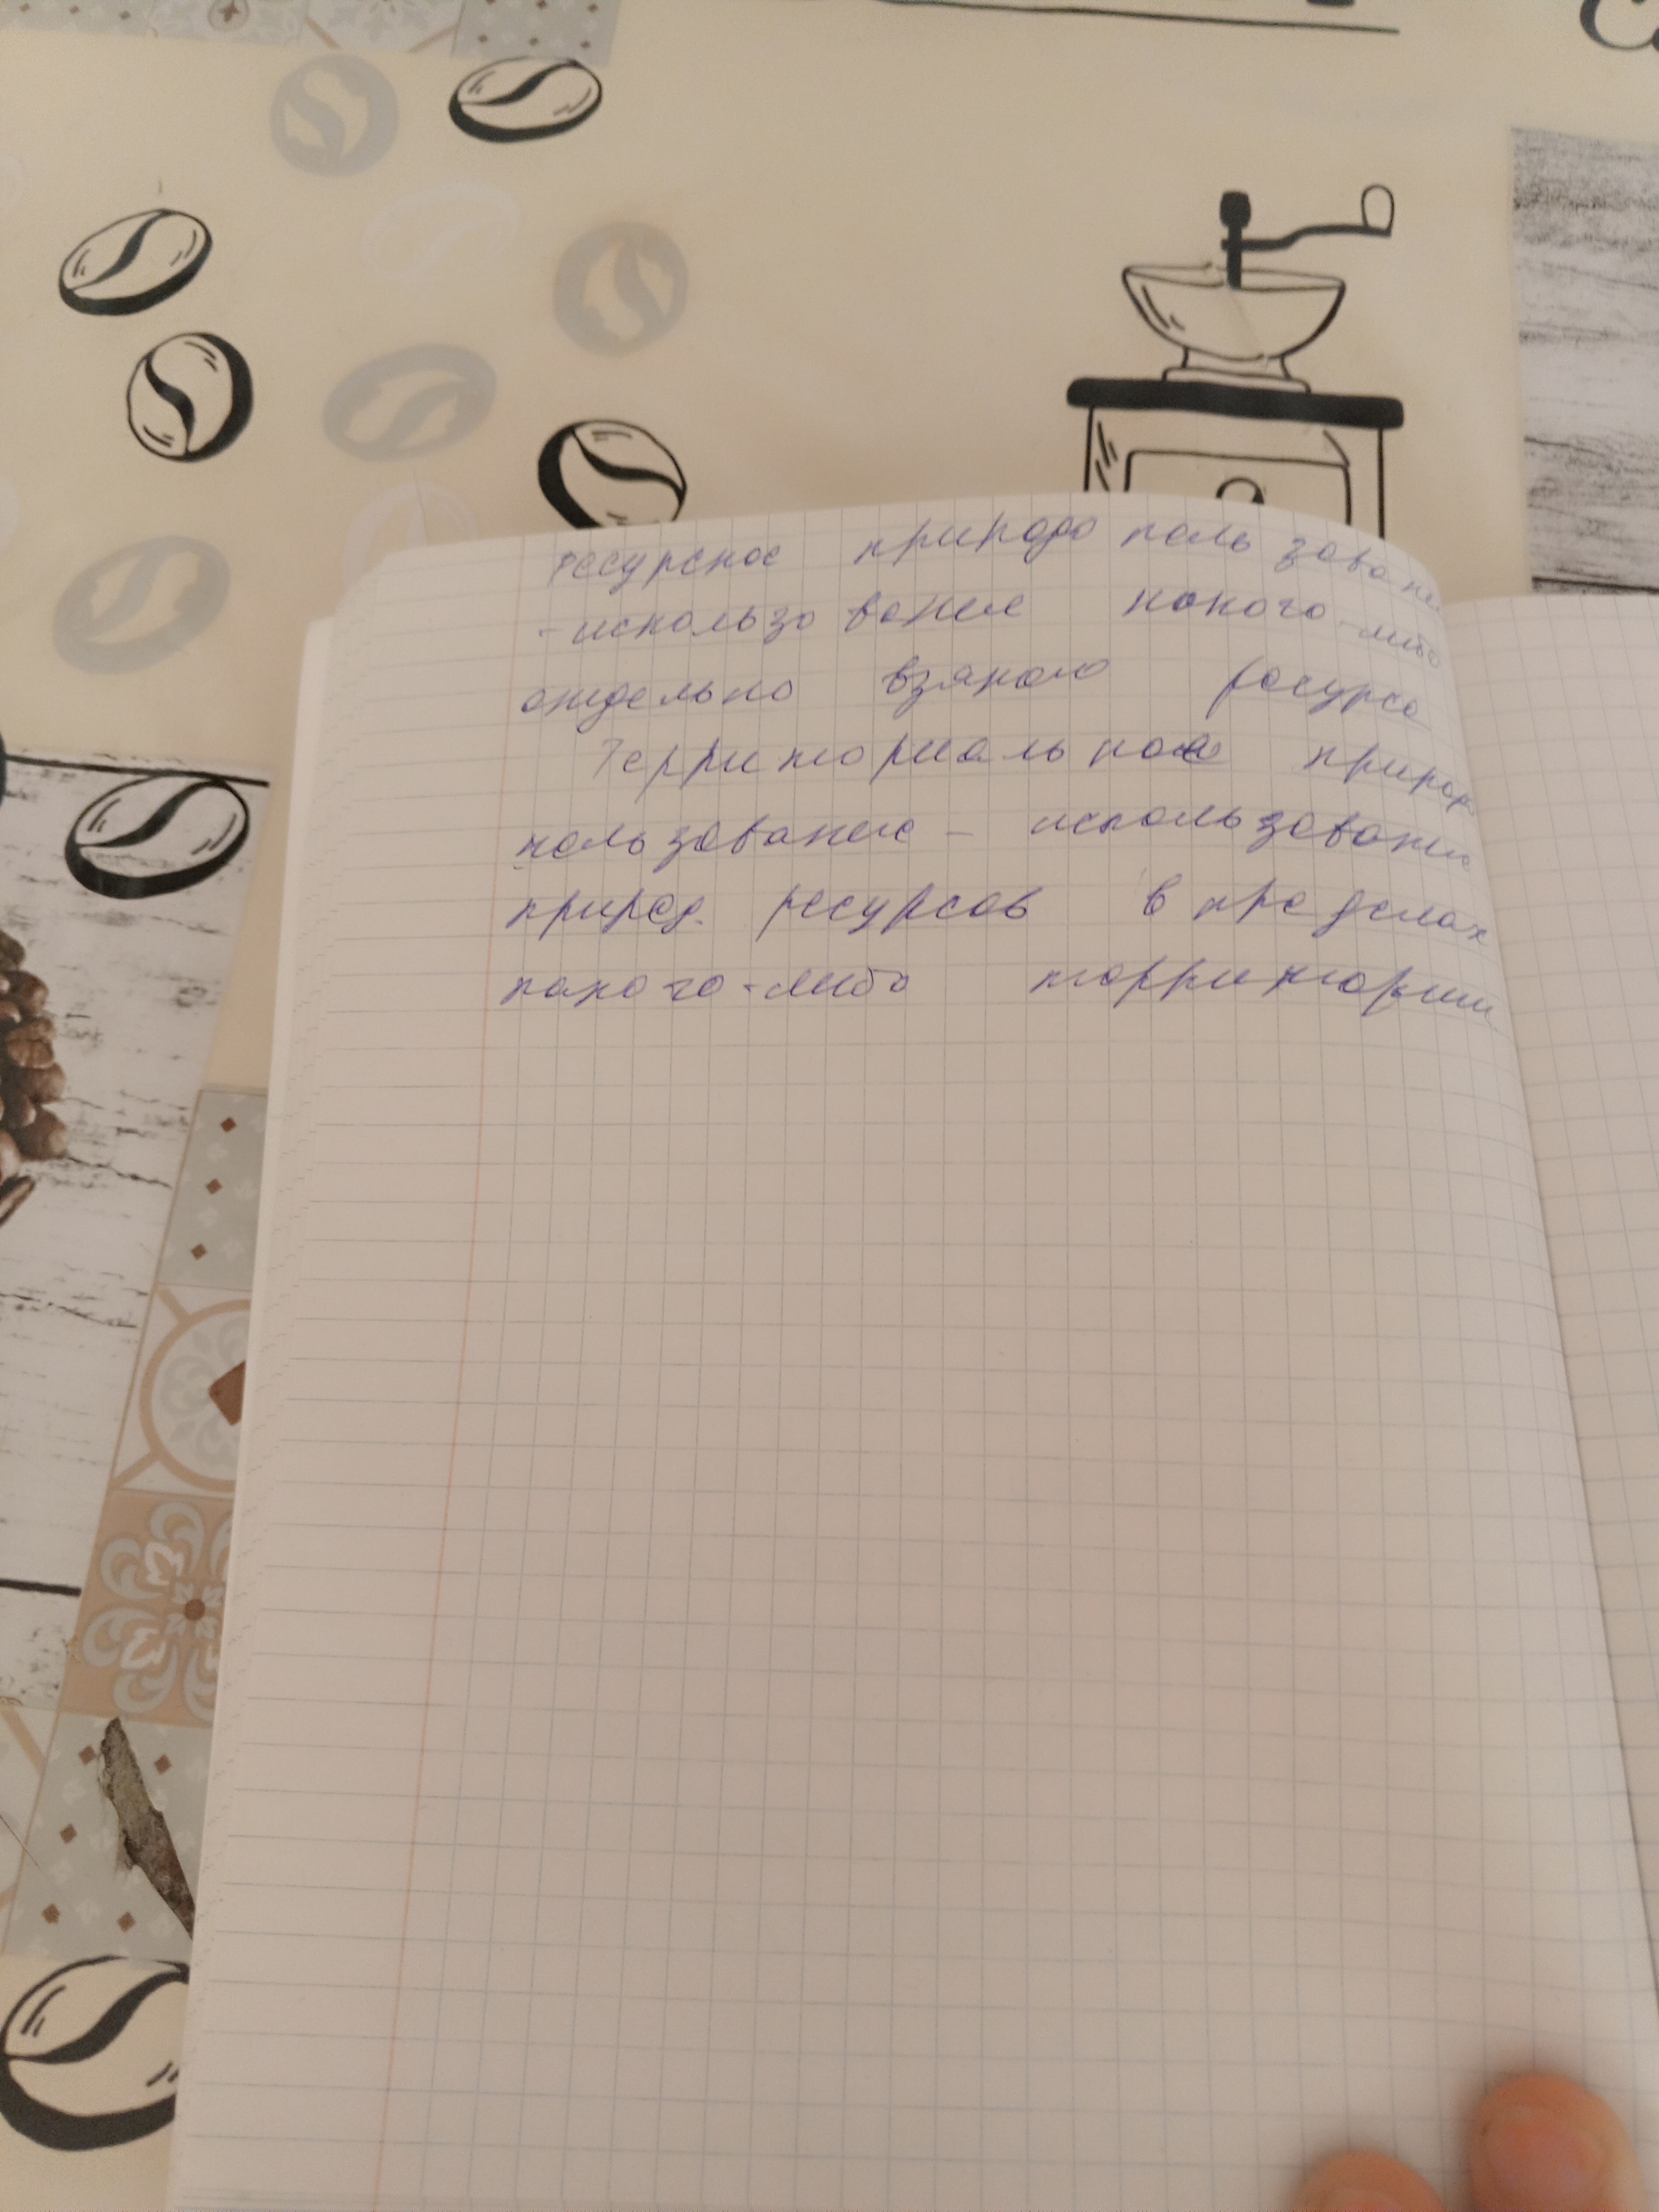 Ресурсное природо пользование
-использование какого-либо
отдельно взятого ресурса
Территориальное природо
пользование - использование
природ. ресурсов в пределах
какого-либо территории